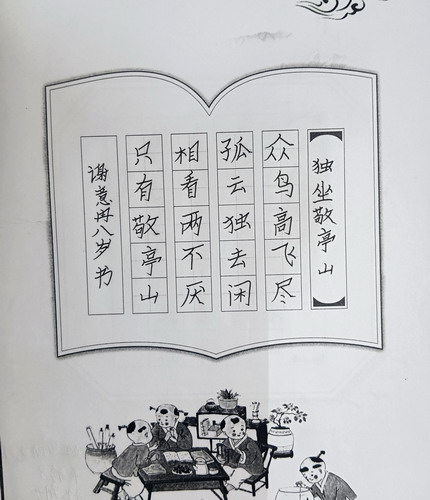 独坐敬亭山
众鸟高飞尽
孤云独去闲
相看两不厌
只有敬亭山
谢意冉八岁书